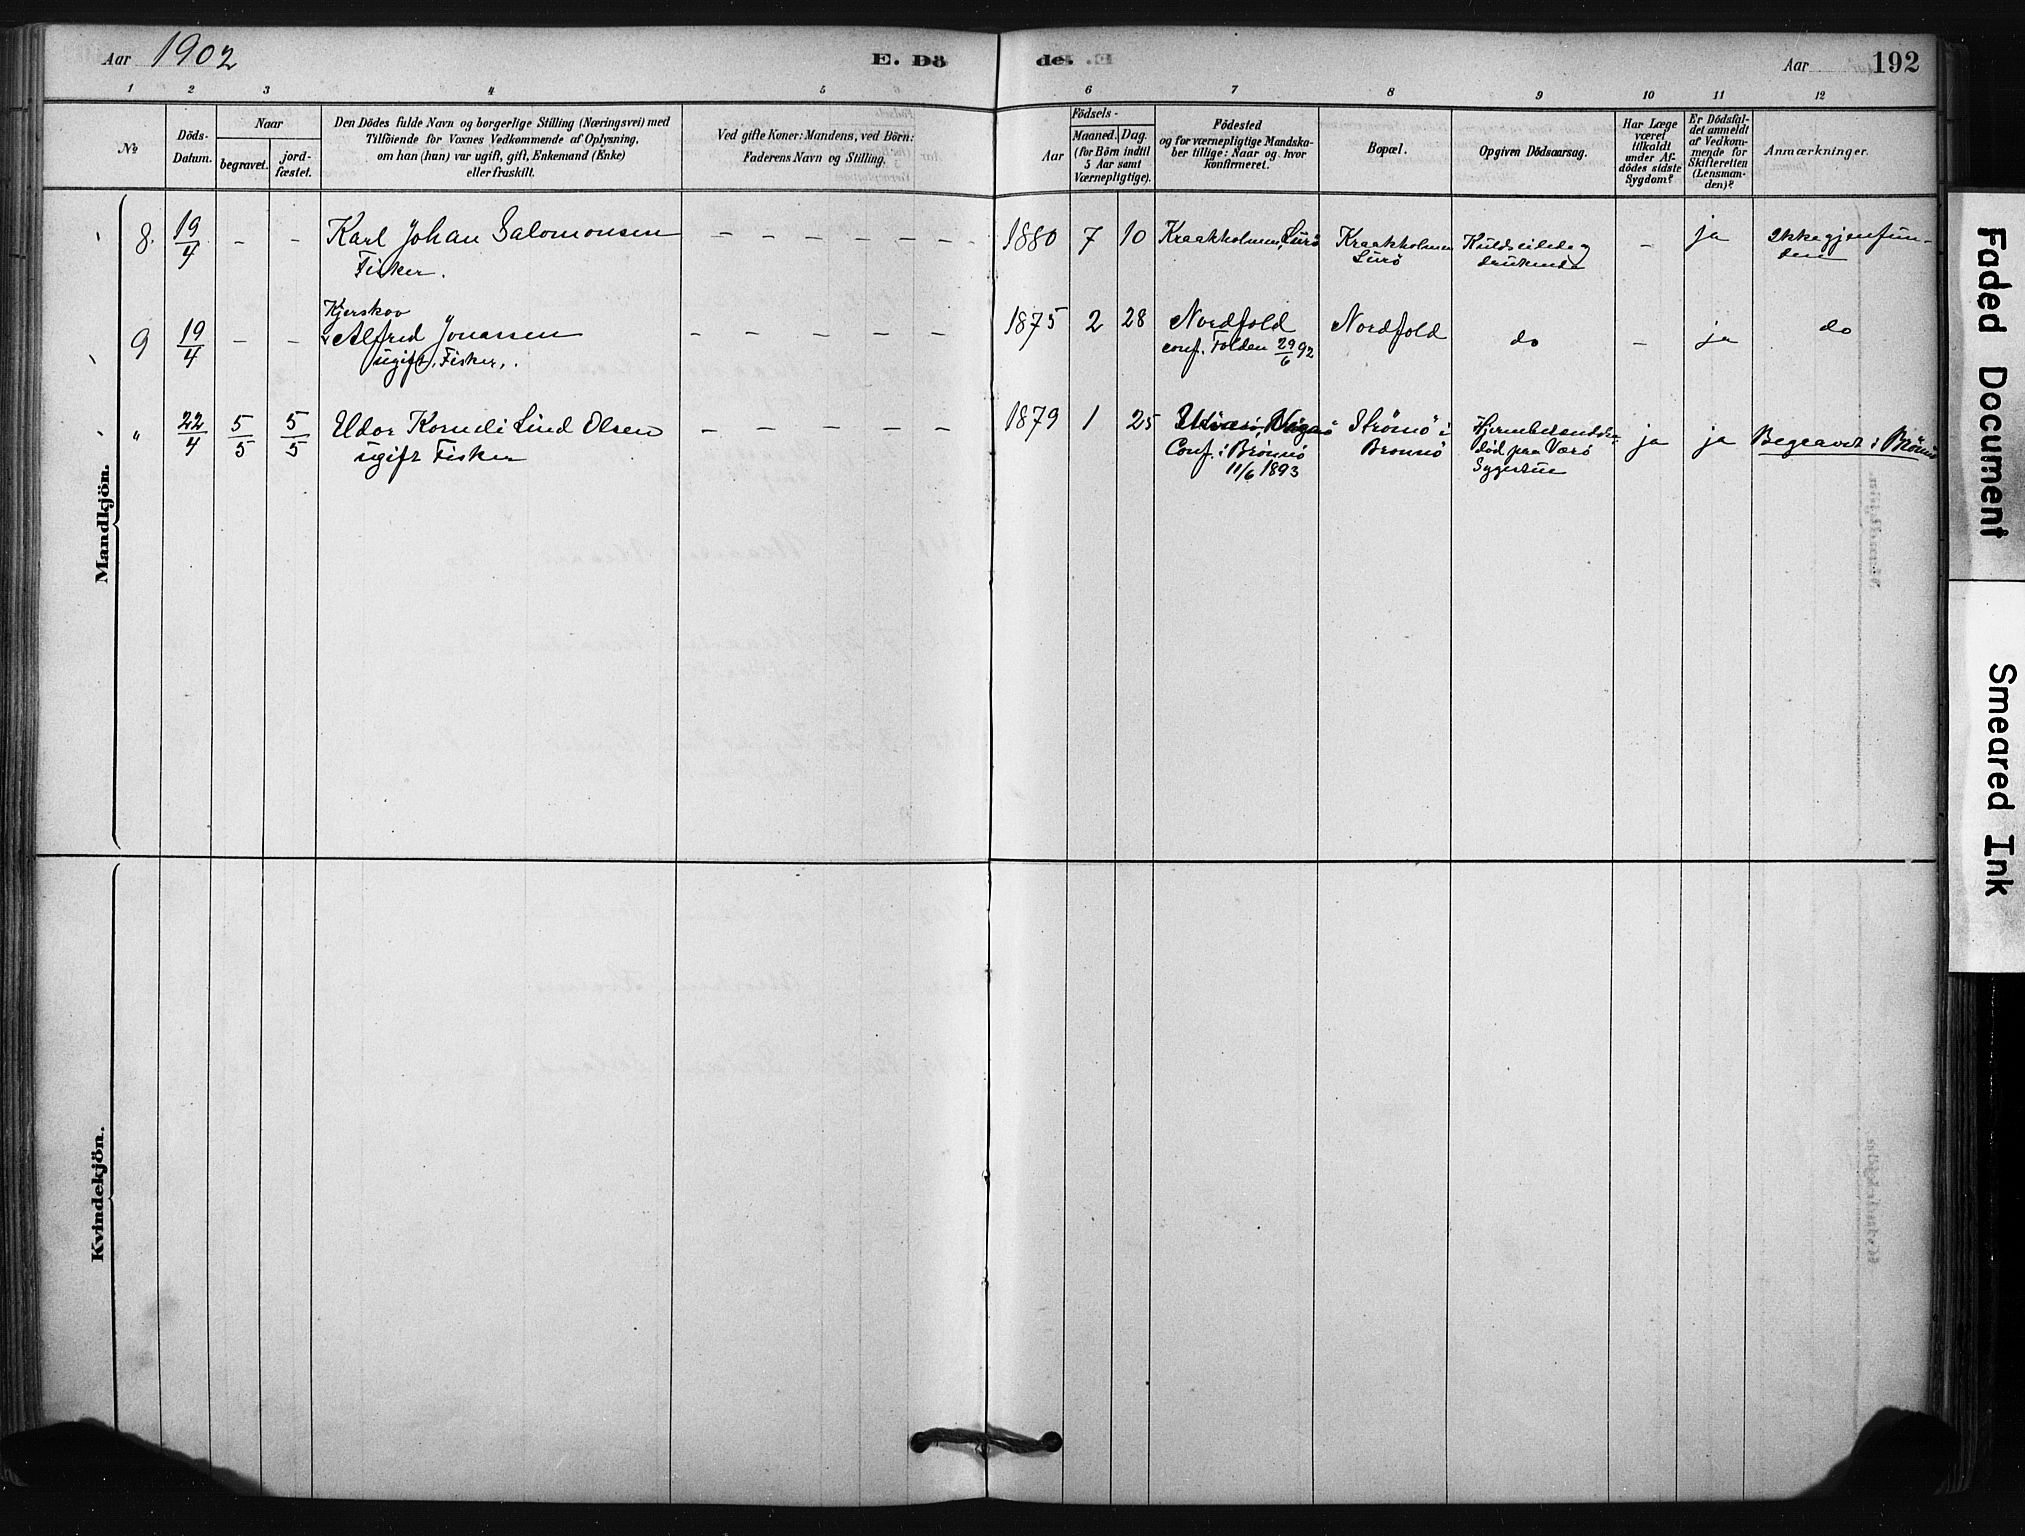 Aar 1902
E. Dö
de.
Aar
192
1 2 3 4 5 6 7 8 9 10 11 12
No
Döds-
Datum.
Naar
begravet.
jord-
fæstet.
Den Dödes fulde Navn og borgerlige Stilling (Næringsvei) med
Tilföiende for Voxnes Vedkommende af Oplysning,
om han (hun) var ugift, gift, Enkemand (Enke)
eller fraskilt.
Ved gifte Koner: Mandens, ved Börn:
Faderens Navn og Stilling.
Födsels-
Aar
Maaned.
Dag.
(for Börn indtil
5 Aar samt
Værnepligtige).
Födested
og for værnepligtige Mandska-
ber tillige: Naar og hvor
konfirmeret.
Bopæl.
Opgiven Dödsaarsag.
Har Læge
været
tilkaldt
under Af-
dödes sidste
Sygdom?
Er Dödsfal-
det anmeldt
af Vedkom-
mende for
Skifteretten
(Lensman-
den)?
Anmærkninger.
Mandkjön.
8. 19/4 - - Karl Johan Salomonsen - - - - - - - 1880 7 10 Kraakholmen, Lurö Kraakholmen Kuldseilede og - ja Ikke gjenfun-
Fisker. Lurö druknede den
Kjerskov
9 19/4 - - Alfred Jonassen - - - - - - 1875 2 28 Nordfold Nordfold do - ja do
ugift, Fisker. conf. Folden 29/6 92
" 22/4 5/5 5/5 Eldor Korneli Lind Olsen - - - - - - - 1879 1 25 Strömö i ja ja Begravet i Brönnö
ugift Fisker Conf. i Brönnö Brönnö död paa Værö
11/6 1893 Sygestue
Kvindekjön.
Faded Document
Smeared Ink